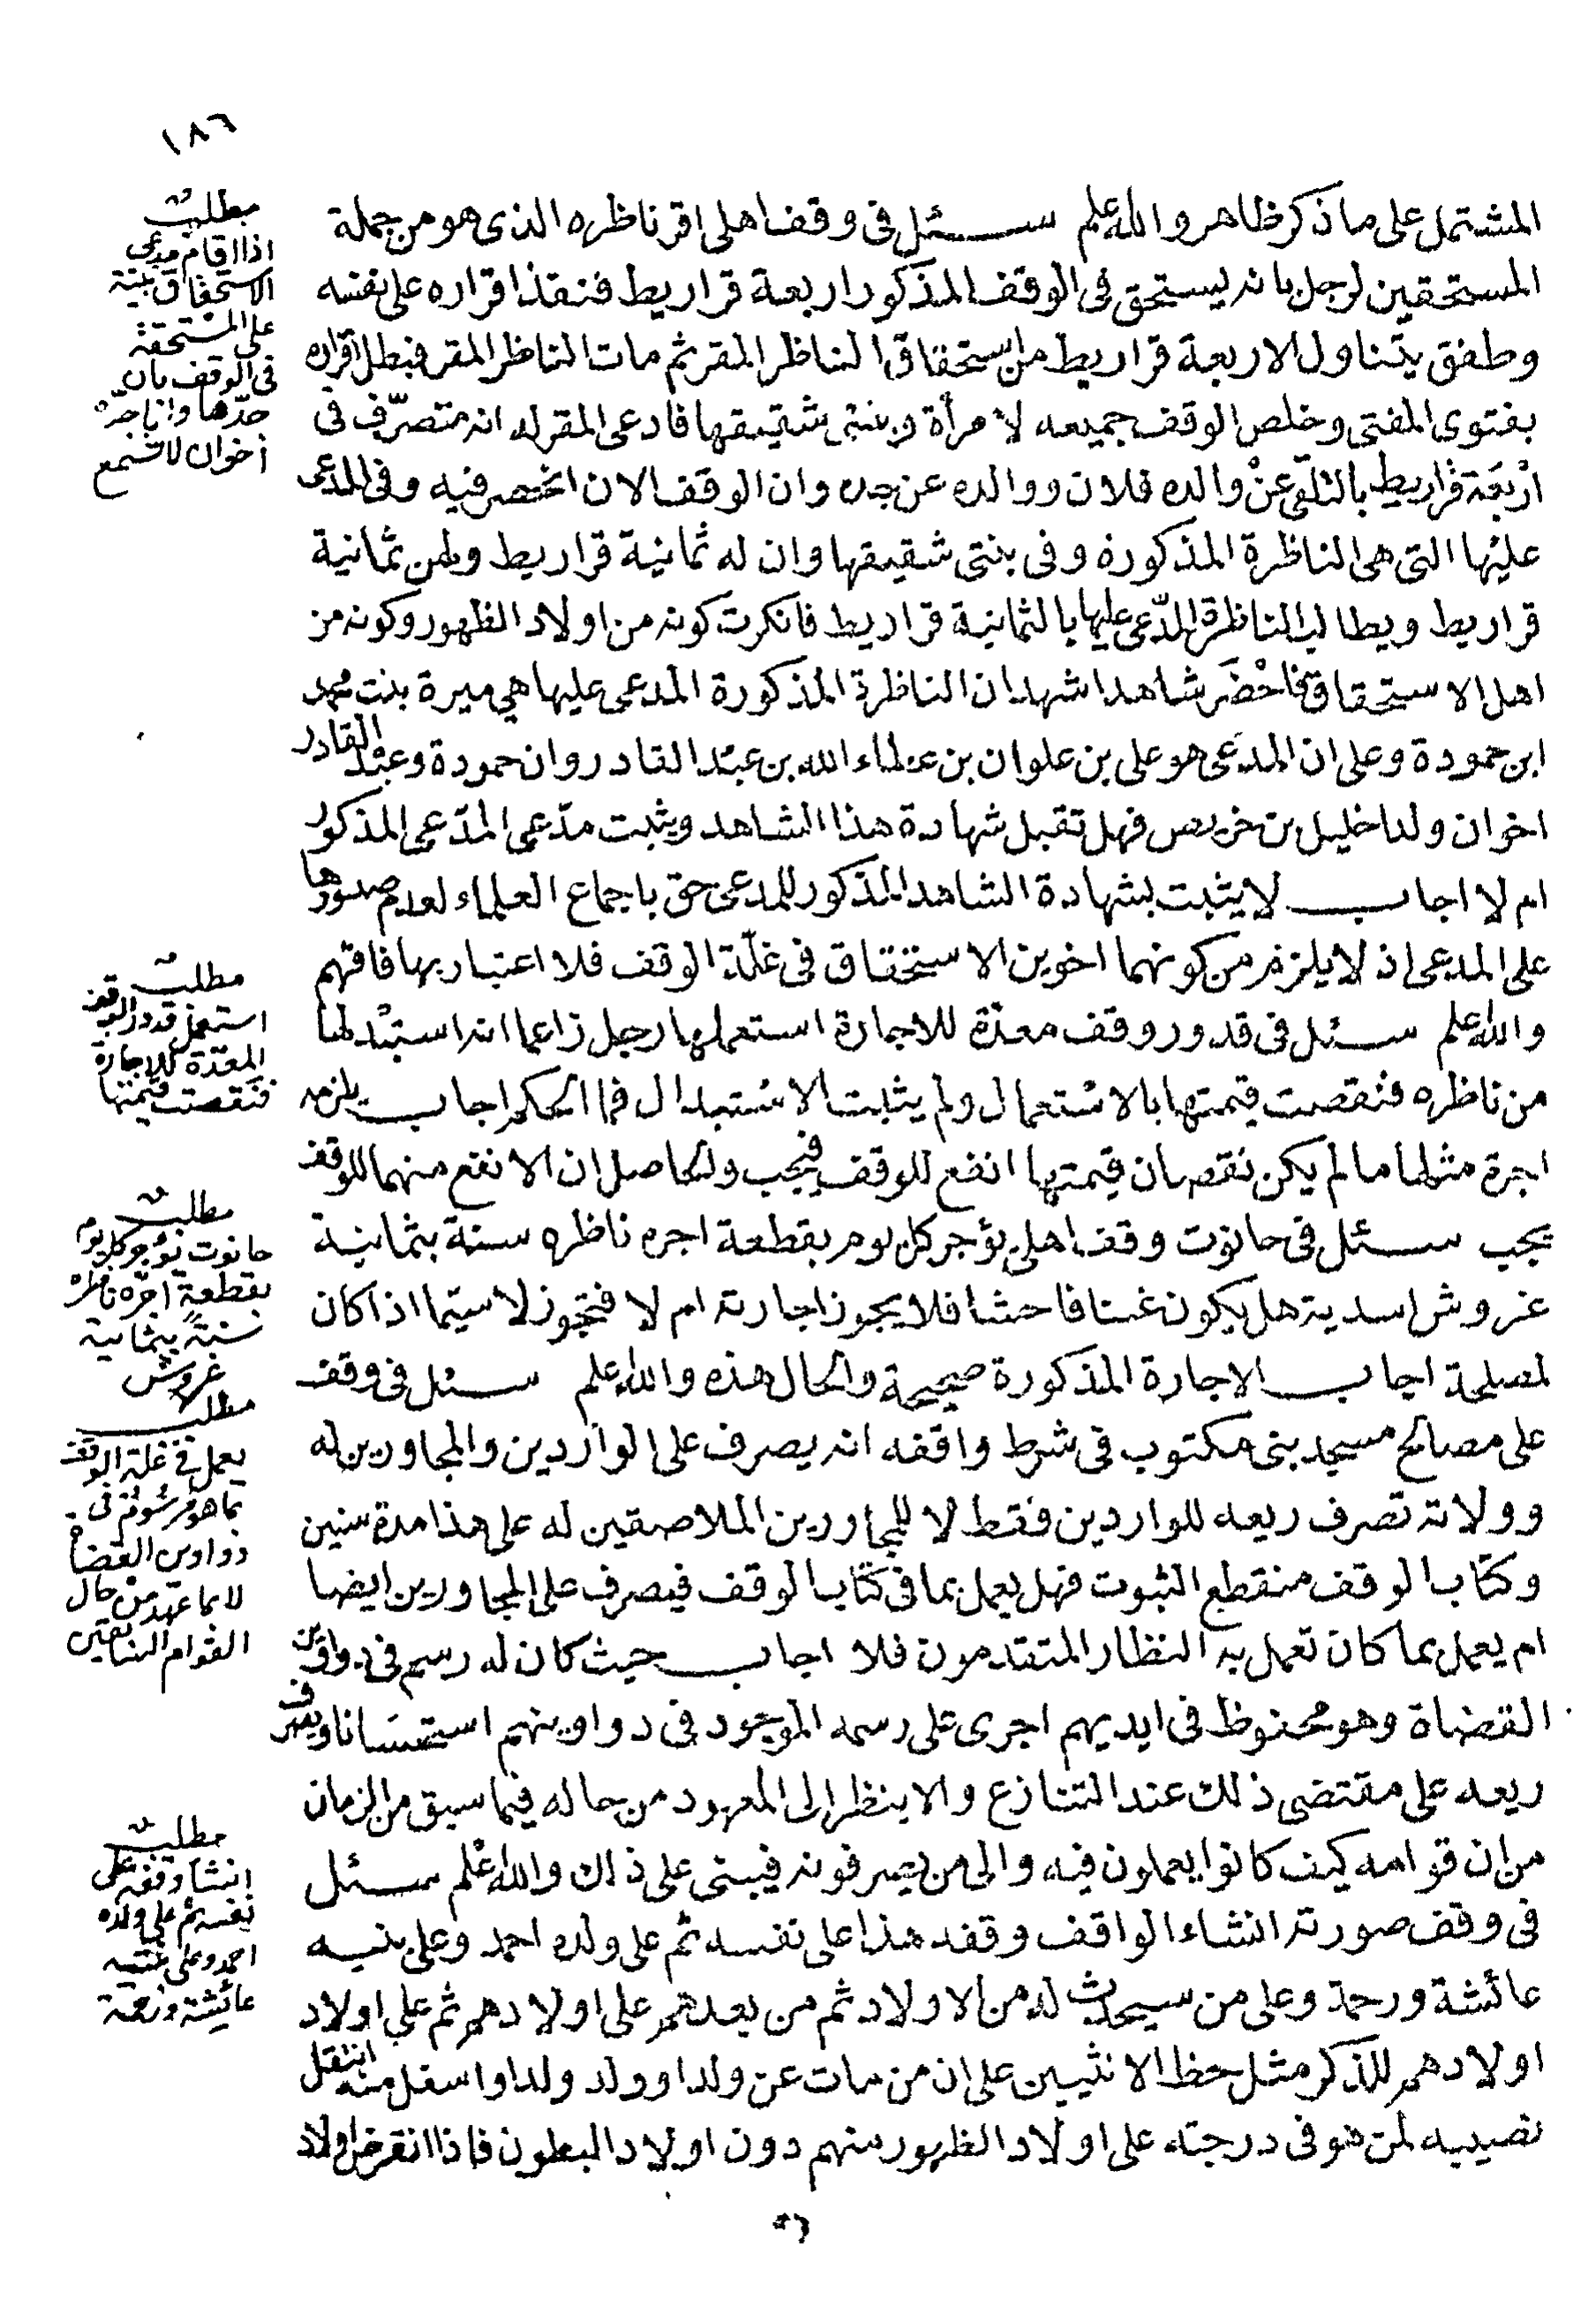 ١٨٦
المشتمل على ما ذكر ظاهر والله اعلم سئل فى وقف اهلى اقر ناظره الذى هو من جملة
المستحقين لرجل بانه يستحق فى الوقف المذكور اربعة قراريط فنفذ اقراره على نفسه
وطفق يتناول الاربعة قراريط من استحقاق الناظر المقر ثم مات الناظر المقر فبطل اقراره
بفتوى المفتى وخلص الوقف جميعه لامرأة وبنتى شقيقها فادعى المقر له انه متصرّف فى
اربعة قراريط بالتلقى عن والده فلان ووالده عن جده وان الوقف الان انحصر فيه وفى المدعى
عليها التى هى الناظرة المذكورة وفى بنتى شقيقها وان له ثمانية قراريط ولهن ثمانية
قراريط ويطالب الناظرة المدّعى عليها بالثمانية قراريط فانكرت كونه من اولاد الظهور وكونه من
اهل الاستحقاق فاحضر شاهدا شهد ان الناظرة المذكورة المدعى عليها هى ميرة بنت محمد
ابن حمودة وعلى ان المدعى هو على بن علوان بن عطاء الله بن عبد القادر وان حمودة وعبد القادر
اخوان ولدا خليل بن خريص فهل تقبل شهادة هذا الشاهد ويثبت مدّعى المدّعى المذكور
ام لا اجاب لا يثبت بشهادة الشاهد المذكور للمدعى حق باجماع العلماء لعدم صدورها
على المدعى اذ لا يلزم من كونهما اخوين الاستحقاق فى غلّة الوقف فلا اعتبار بها فافهم
والله اعلم سئل فى قدور وقف معدّة للاجارة استعملها رجل زاعما انه استبدلها
من ناظره فنقصت قيمتها بالاستعمال ولم يثبت الاستبدال فما الحكم اجاب يلزمه
اجرة مثلها ما لم يكن نقصان قيمتها انفع للوقف فيجب والحاصل ان الانفع منهما للوقف
يجب سئل فى حانوت وقف اهلى يؤجر كل يوم بقطعة اجره ناظره سنة بثمانية
غروش اسدية هل يكون غبنا فاحشا فلا يجوز اجارته ام لا فتجوز لا سيّما اذا كان
لمصلحة اجاب الاجارة المذكورة صحيحة والحال هذه والله اعلم سئل فى وقف
على مصالح مسجد بنى مكتوب فى شرط واقفه انه يصرف على الواردين والمجاورين له
وولاته تصرف ريعه للواردين فقط لا للمجاورين الملاصقين له على هذا مدة سنين
وكتاب الوقف منقطع الثبوت فهل يعمل بما فى كتاب الوقف فيصرف على المجاورين ايضا
ام يعمل بما كان تعمل به النظار المتقدمون فلا اجاب حيث كان له رسم فى دواوين
القضاة وهو محفوظ فى ايديهم اجرى على رسمه الموجود فى دواوينهم استحسانا ويصرف
ريعه على مقتضى ذلك عند التنازع والا ينظر الى المعهود من حاله فيما سبق من الزمان
من ان قوامه كيف كانوا يعملون فيه والى من يصرفونه فيبنى على ذلك والله اعلم سئل
فى وقف صورته انشاء الواقف وقفه هذا على نفسه ثم على ولده احمد وعلى بنتيه
عائشة ورحمة وعلى من سيحدث له من الاولاد ثم من بعدهم على اولادهم ثم على اولاد
اولادهم للذكر مثل حظ الانثيين على ان من مات عن ولد او ولد ولد او اسفل منه انتقل
نصيبه لمن هو فى درجته على اولاد الظهور منهم دون اولاد البطون فاذا انقرض اولاد
مطلب
اذا اقام مدعى
الاستحقاق بينة
على المستحقة
فى الوقف بان
جدّها وابا جدّه
اخوان لا تسمع
مطلب
استعمل قدور الوقف
المعدّة للاجارة
فنقصت قيمتها
مطلب
حانوت تؤجر كل يوم
بقطعة اجّره ناظره
سنة بثمانية
غروش
مطلب
يعمل فى غلة الوقف
بما هو مرسوم فى
دواوين القضاة
لا بما عهد من حال
القوام السابقين
مطلب
انشأ وقفه على
نفسه ثم على ولده
احمد وعلى بنتيه
عائشة ورحمة